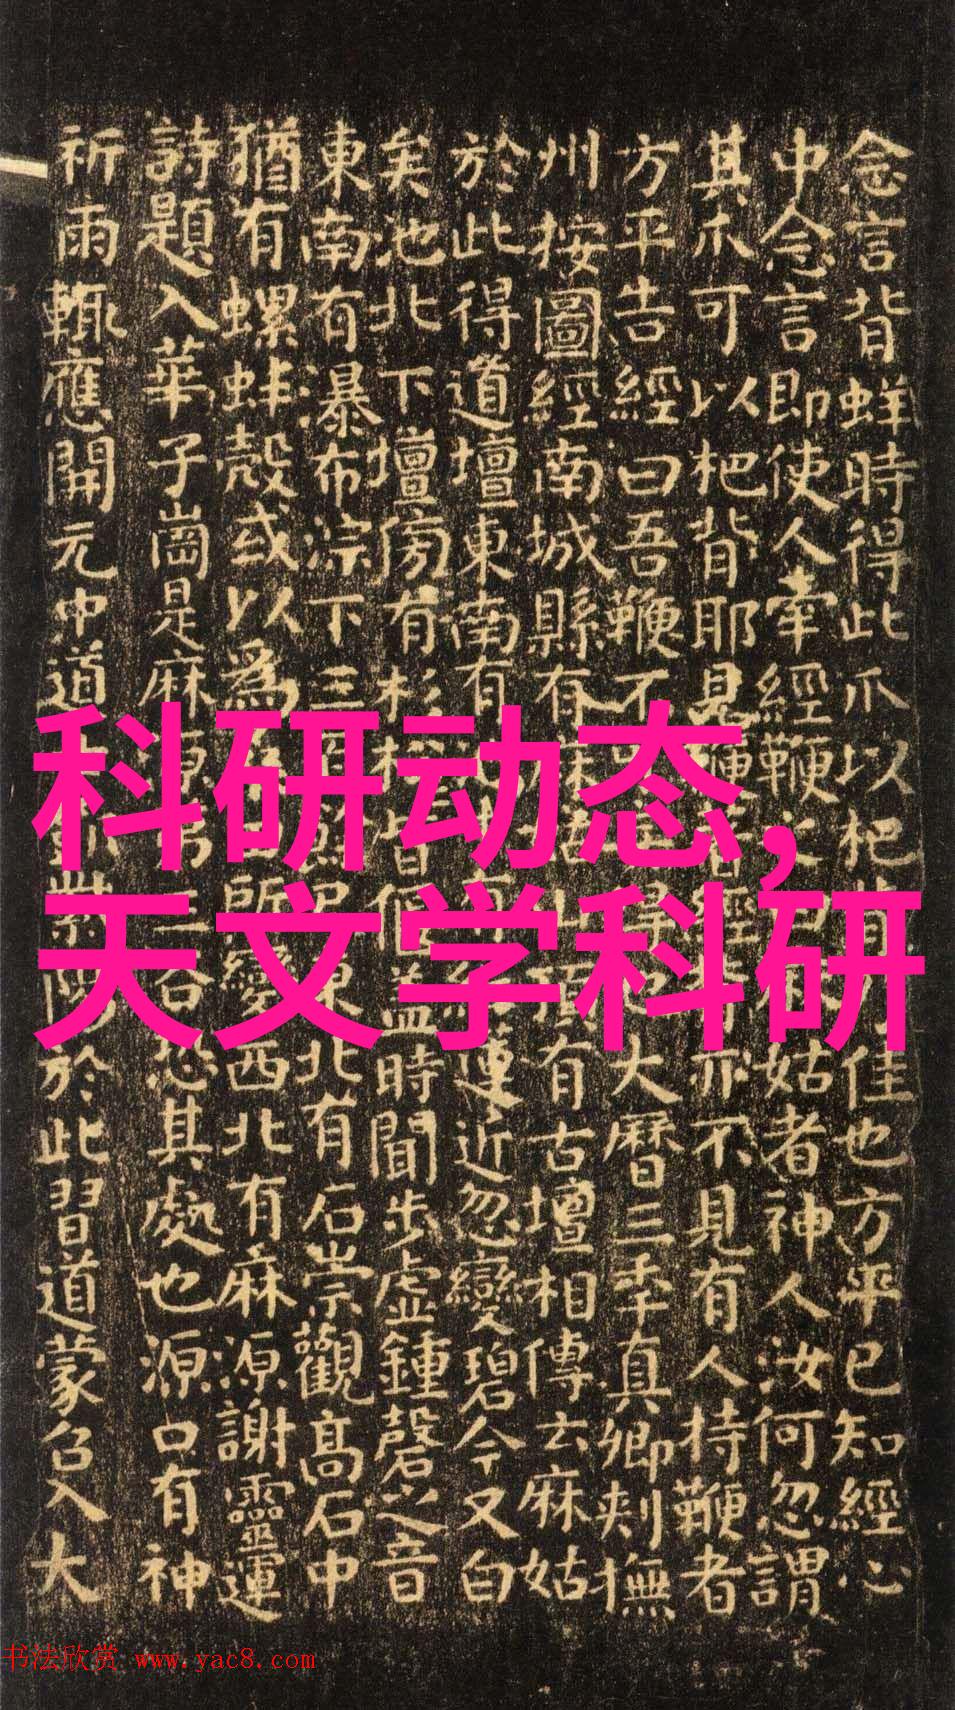 念言背蛘時得此爪以杷背佳也方平已知經心
中念言即使人牽經鞭之姑者神人汝何忽謂
其爪可以杷背耶見鞭著經亦不見有人持鞭者
方平告經曰吾鞭不大曆三年真卿刺撫
州按圖經南城縣有山頂有古壇相傳云麻姑
於此得道壇東南有蓮近忽變碧今又白
矣池北下壇傍有杉松皆偃蓋時聞步虛鍾磬之音
東南有瀑布淙下三東北有石崇觀高石中
猶有螺蚌殼或以為所變西北有麻源謝靈運
詩題入華子崗是麻源第三谷恐其處也源口有神
祈雨輒應開元中道紫陽於此習道蒙召入大
科研动态,
天文学科研
书法欣赏 www.yac8.com